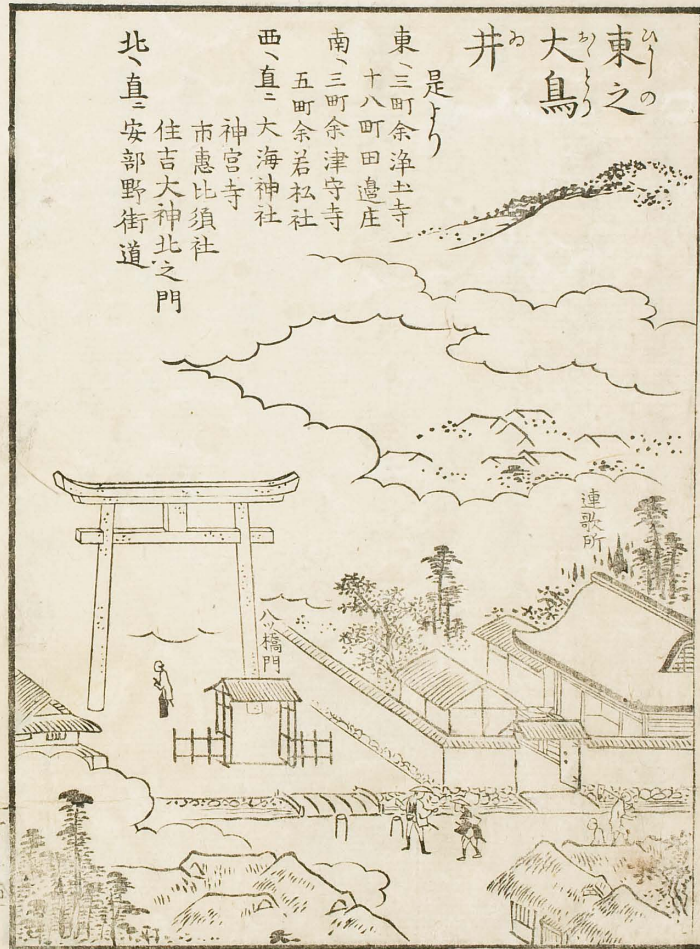 東之
ひがしの
大鳥
おゝとり
井
ゐ
是より
東、三町余浄土寺
十八町田邉庄
南、三町余津守寺
五町余若松社
西、直ニ大海神社
神宮寺
市恵比須社
住吉大神北之門
北、直ニ安部野街道
連歌所
八ツ橋門